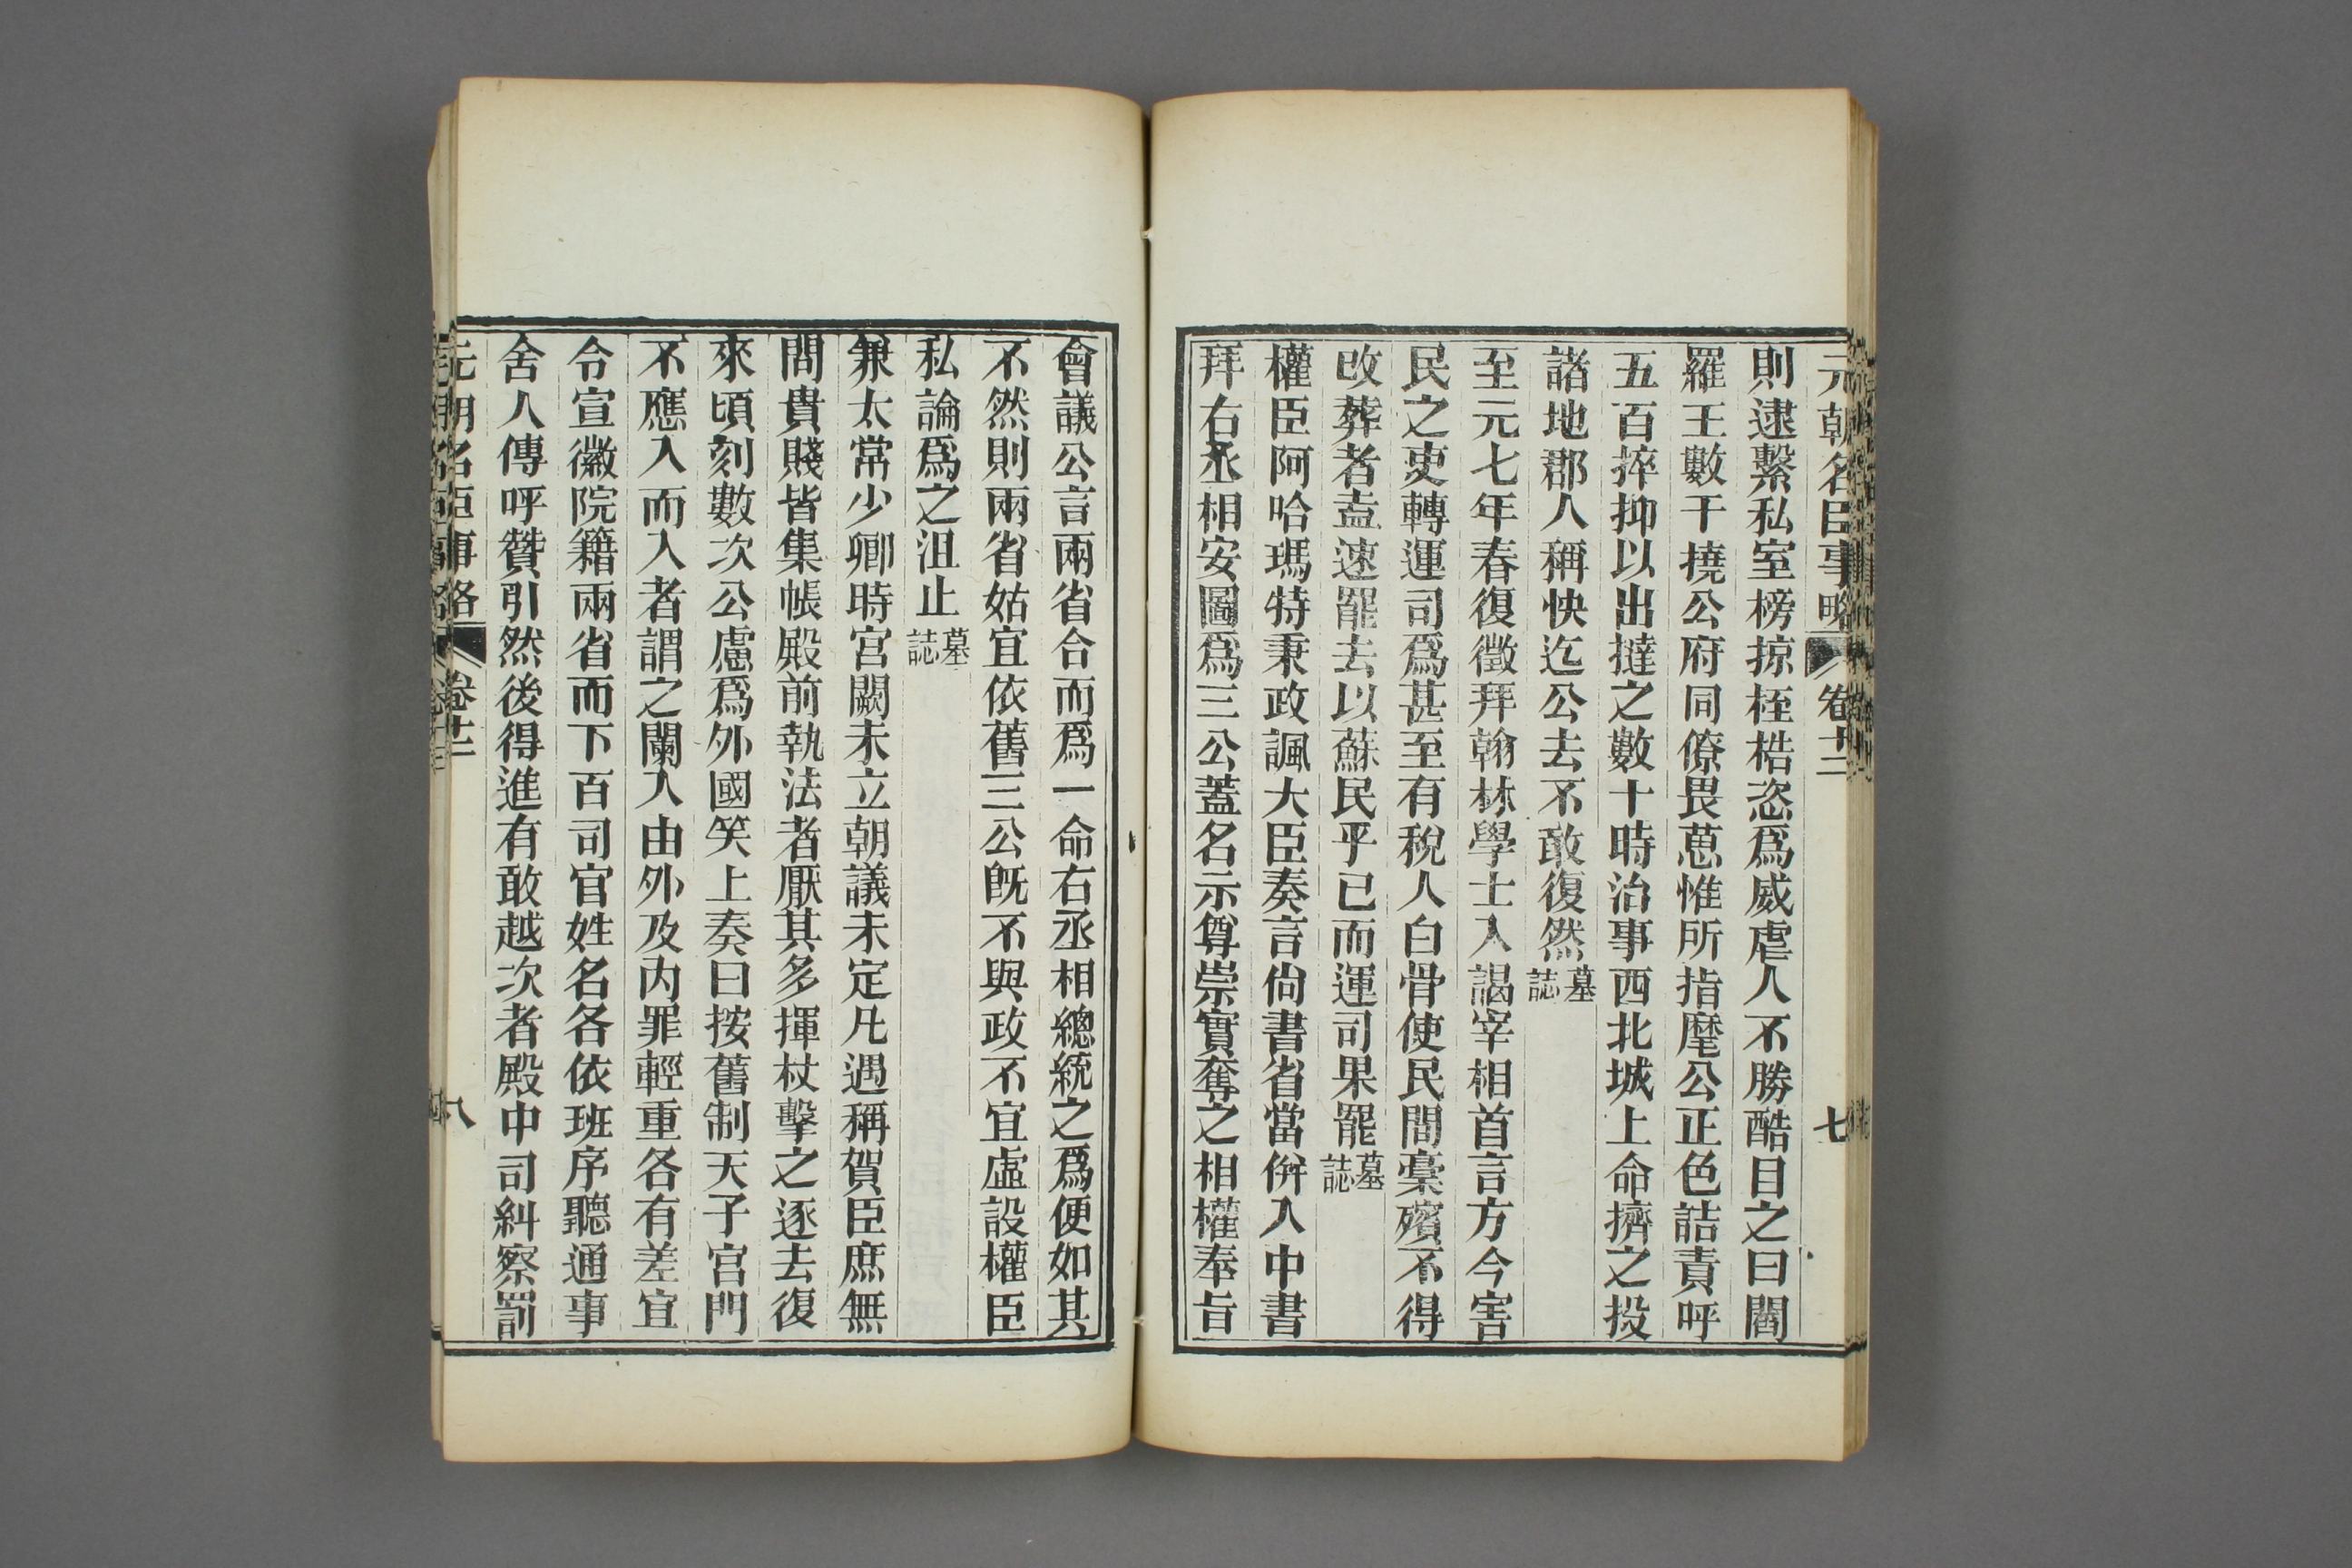 元朝名臣事略 卷十二 七
則逮繫私室榜掠桎梏恣爲威虐人不勝酷目之曰閻
羅王數干撓公府同僚畏葸惟所指麾公正色詰責呼
五百捽抑以出撻之數十時治事西北城上命擠之投
諸地郡人稱快迄公去不敢復然墓誌
至元七年春復徵拜翰林學士入謁宰相首言方今害
民之吏轉運司爲甚至有稅人白骨使民間槀殯不得
改葬者盍速罷去以蘇民乎已而運司果罷墓誌
權臣阿哈瑪特秉政諷大臣奏言尙書省當併入中書
拜右丞相安圖爲三公蓋名示尊崇實奪之相權奉旨
會議公言兩省合而爲一命右丞相總統之爲便如其
不然則兩省姑宜依舊三公旣不與政不宜虛設權臣
私論爲之沮止墓誌
兼太常少卿時宮闕未立朝議未定凡遇稱賀臣庶無
問貴賤皆集帳殿前執法者厭其多揮杖擊之逐去復
來頃刻數次公慮爲外國笑上奏曰按舊制天子宮門
不應入而入者謂之闌入由外及內罪輕重各有差宜
令宣徽院籍兩省而下百司官姓名各依班序聽通事
舍人傳呼贊引然後得進有敢越次者殿中司糾察罰
元朝名臣事略 卷十二 八